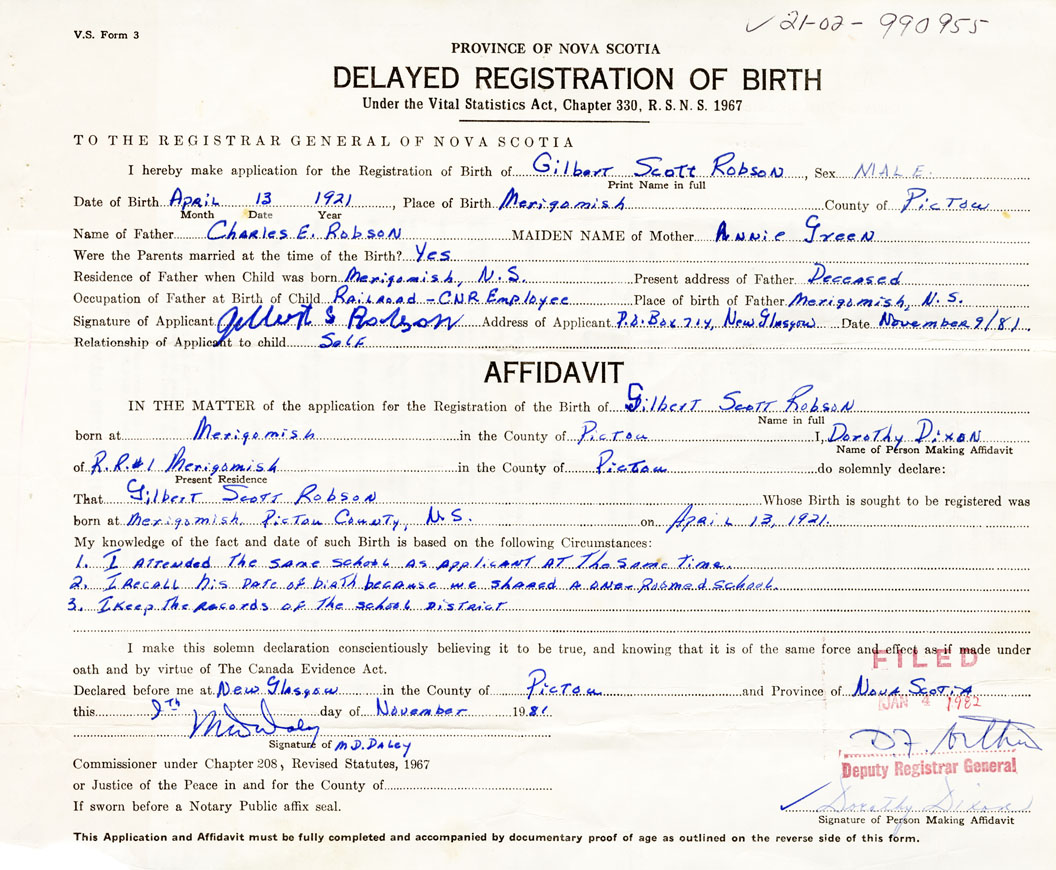 V.S. Form 3
✓21-02-990955
PROVINCE OF NOVA SCOTIA
DELAYED REGISTRATION OF BIRTH
Under the Vital Statistics Act, Chapter 330, R.S.N.S. 1967
TO THE REGISTRAR GENERAL OF NOVA SCOTIA
I hereby make application for the Registration of Birth of Gilbert Scott Robson, Sex MALE.
Print Name in full
Date of Birth April 13 1921, Place of Birth Merigomish County of Pictou
Month Date Year
Name of Father Charles E. Robson MAIDEN NAME of Mother Annie Green
Were the Parents married at the time of the Birth? Yes
Residence of Father when Child was born Merigomish, N.S. Present address of Father Deceased
Occupation of Father at Birth of Child Railroad - CNR Employee Place of birth of Father Merigomish, N.S.
Signature of Applicant Gilbert S Robson Address of Applicant P.O. Box 714, New Glasgow Date November 9/81
Relationship of Applicant to child Self
AFFIDAVIT
IN THE MATTER of the application for the Registration of the Birth of Gilbert Scott Robson
Name in full
born at Merigomish in the County of Pictou I, Dorothy Dixon
Name of Person Making Affidavit
of R.R.#1 Merigomish in the County of Pictou do solemnly declare:
Present Residence
That Gilbert Scott Robson Whose Birth is sought to be registered was
born at Merigomish Pictou County, N.S. on April 13, 1921.
My knowledge of the fact and date of such Birth is based on the following Circumstances:
1. I attended the same school as applicant at the same time.
2. I recall his date of birth because we shared a one-roomed school.
3. I keep the records of the school district
I make this solemn declaration conscientiously believing it to be true, and knowing that it is of the same force and effect as if made under
FILED
oath and by virtue of The Canada Evidence Act.
Declared before me at New Glasgow in the County of Pictou and Province of Nova Scotia
JAN 4 1982
this 9th day of November 1981
M D Daley
Signature of M.D. Daley
D F Arthur
Commissioner under Chapter 208, Revised Statutes, 1967
Deputy Registrar General
or Justice of the Peace in and for the County of
Dorothy Dixon
If sworn before a Notary Public affix seal.
Signature of Person Making Affidavit
This Application and Affidavit must be fully completed and accompanied by documentary proof of age as outlined on the reverse side of this form.